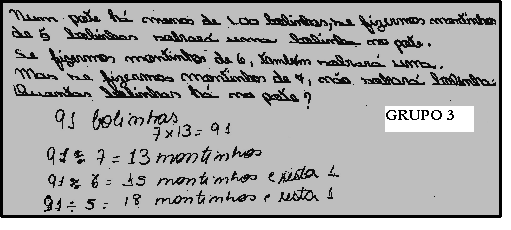 Num pote há menos de 100 bolinhas, se fizermos montinhos
de 5 bolinhas sobrará uma bolinha no pote.
Se fizermos montinhos de 6, também sobrará uma.
Mas se fizermos montinhos de 7, não sobrará bolinha.
Quantas bolinhas há no pote?
91 bolinhas
7x13 = 91
GRUPO 3
91 ÷ 7 = 13 montinhos
91 ÷ 6 = 15 montinhos e resta 1
91 ÷ 5 = 18 montinhos e resta 1